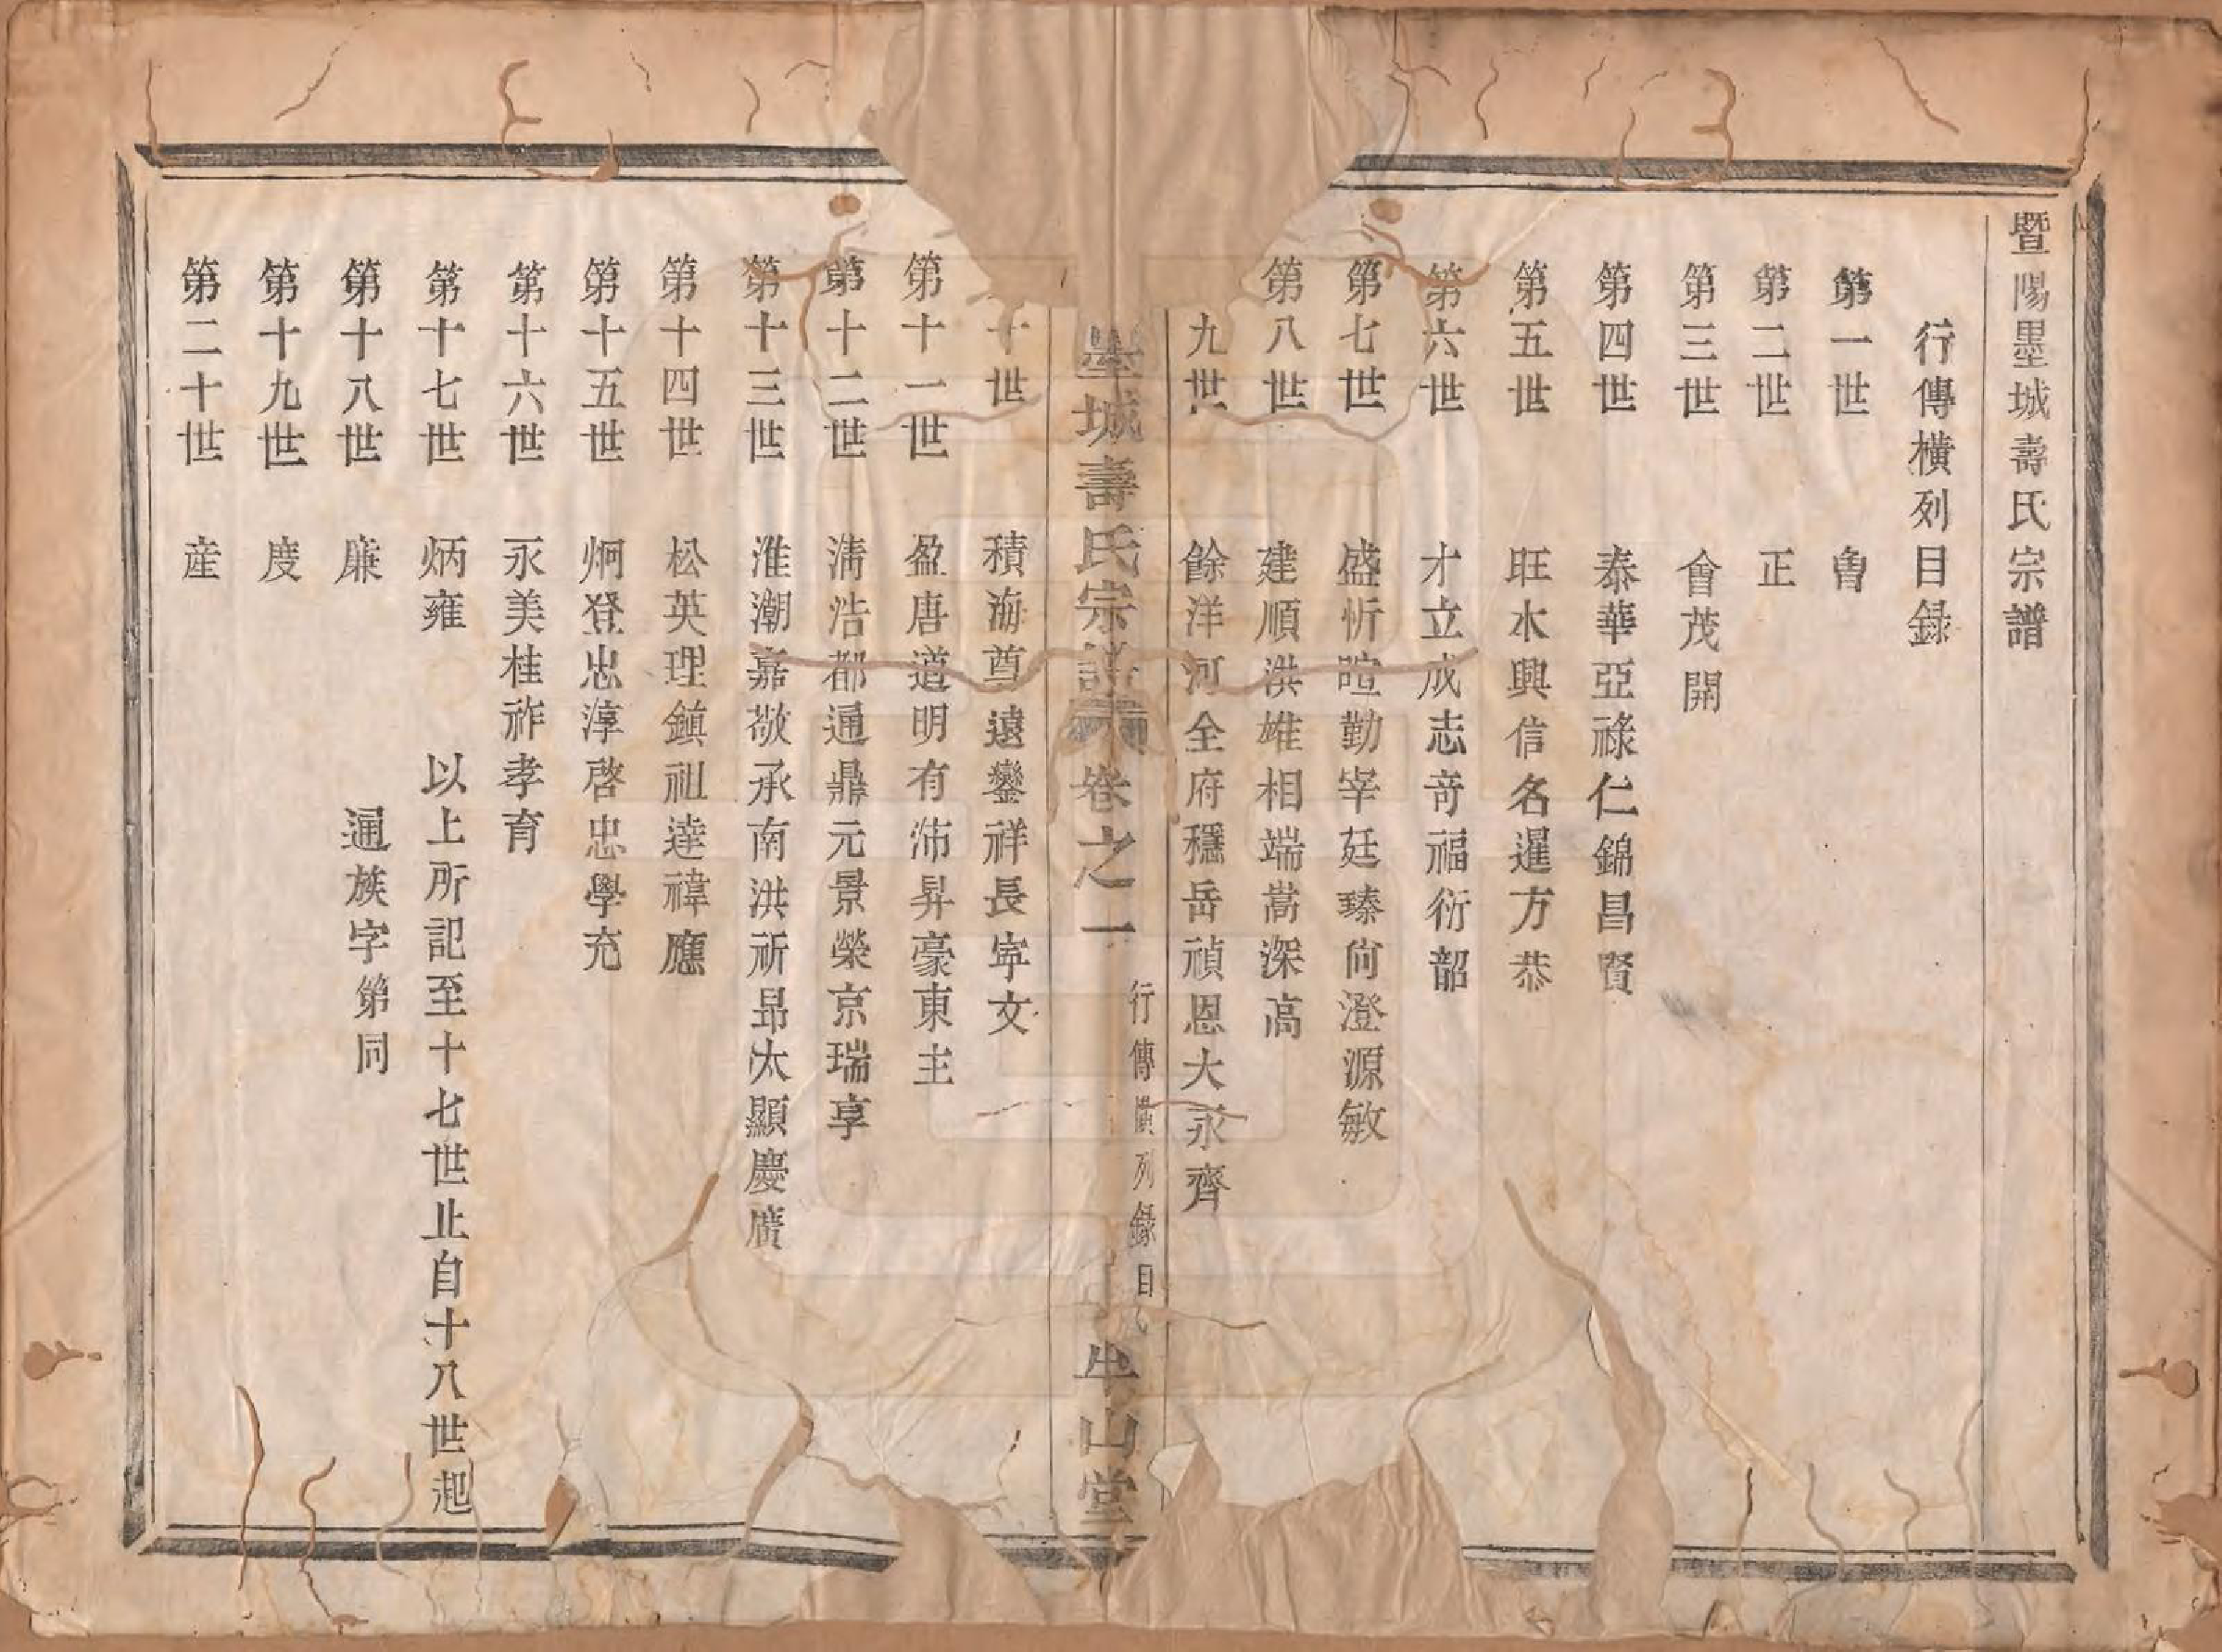 暨陽墨城壽氏宗譜
行傳橫列目錄
第一世 魯
第二世 正
第三世 會茂開
第四世 泰華亞祿仁錦昌賢
第五世 旺水興信名暹方恭
第六世 才立成志奇福衍韶
第七世 盛忻暄勤宰廷臻尙澄源敏
第八世 建順洪雄相端嵩深高
九世 餘洋河全府穩岳禎恩大永齊
墨城壽氏宗譜 卷之一 行傳橫列錄目 半山堂
十世 積海尊遠鑾祥長寧文
第十一世 盈唐道明有沛昇豪東主
第十二世 淸浩都通鼎元景榮京瑞享
第十三世 淮潮嘉敬承南洪祈昻太顯慶廣
第十四世 松英理鎭祖達禕應
第十五世 炯登忠淳啓忠學充
第十六世 永美桂祚孝育
第十七世 炳雍 以上所記至十七世止自十八世起
第十八世 廉 通族字第同
第十九世 度
第二十世 産